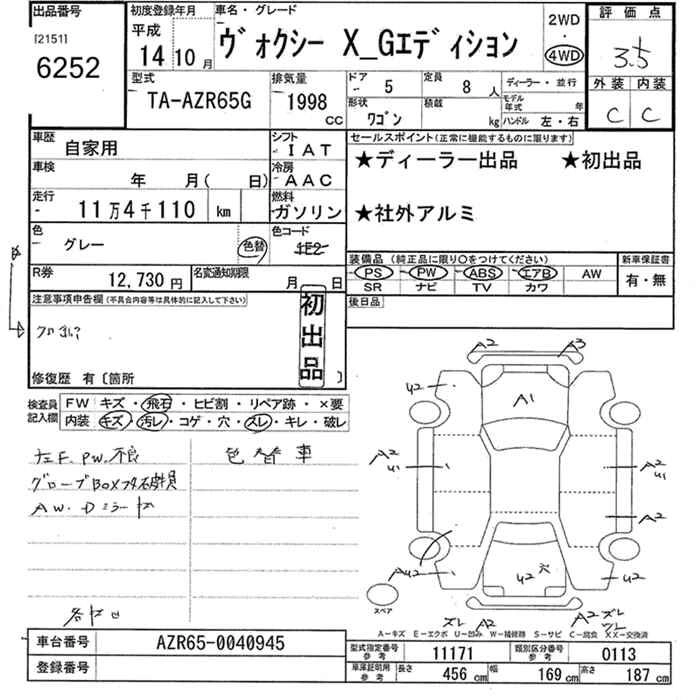 出品番号
[2151]
6252
初度登録年月
平成
14 10月
車名・グレード
ヴォクシー X_Gエディション
2WD
・
4WD
評価点
3.5
外装 内装
C C
型式
TA-AZR65G
排気量
1998 CC
ドア 5
定員 8 人
形状 ワゴン
積載 kg
ディーラー・並行
モデル年式 年
ハンドル 左・右
車歴 自家用
シフト IAT
車検 年 月( 日)
冷房 AAC
走行 11万4千110 km
燃料 ガソリン
色 グレー 色替
色コード 1E2
R券 12,730円
名変通知期限 月 日
セールスポイント(正常に機能するものに限ります)
★ディーラー出品 ★初出品
★社外アルミ
装備品(純正品に限り○をつけてください)
PS PW ABS エアB AW
SR ナビ TV カワ
新車保証書
有・無
後日品
注意事項申告欄(不具合内容等は具体的に記入して下さい)
初出品
修復歴 有〔箇所 〕
検査員記入欄
FW キズ・飛石・ヒビ割・リペア跡・×要
内装 キズ・汚レ・コゲ・穴・スレ・キレ・破レ
左F.PW.不良
グローブBOXフタ破損
AW.Dミラーキズ
色替車
A2 A3
U2
A1
A2
U1
A2
U1
A2
AU2
U2穴
U2
スペア
ズレ A2
A2 ズレ
A-キズ E-エクボ U-凹み W-補修跡 S-サビ C-腐食 XX-交換済
車台番号 AZR65-0040945
登録番号
型式指定番号 参考 11171
類別区分番号 参考 0113
車庫証明用 参考 長さ 456 cm 幅 169 cm 高さ 187 cm